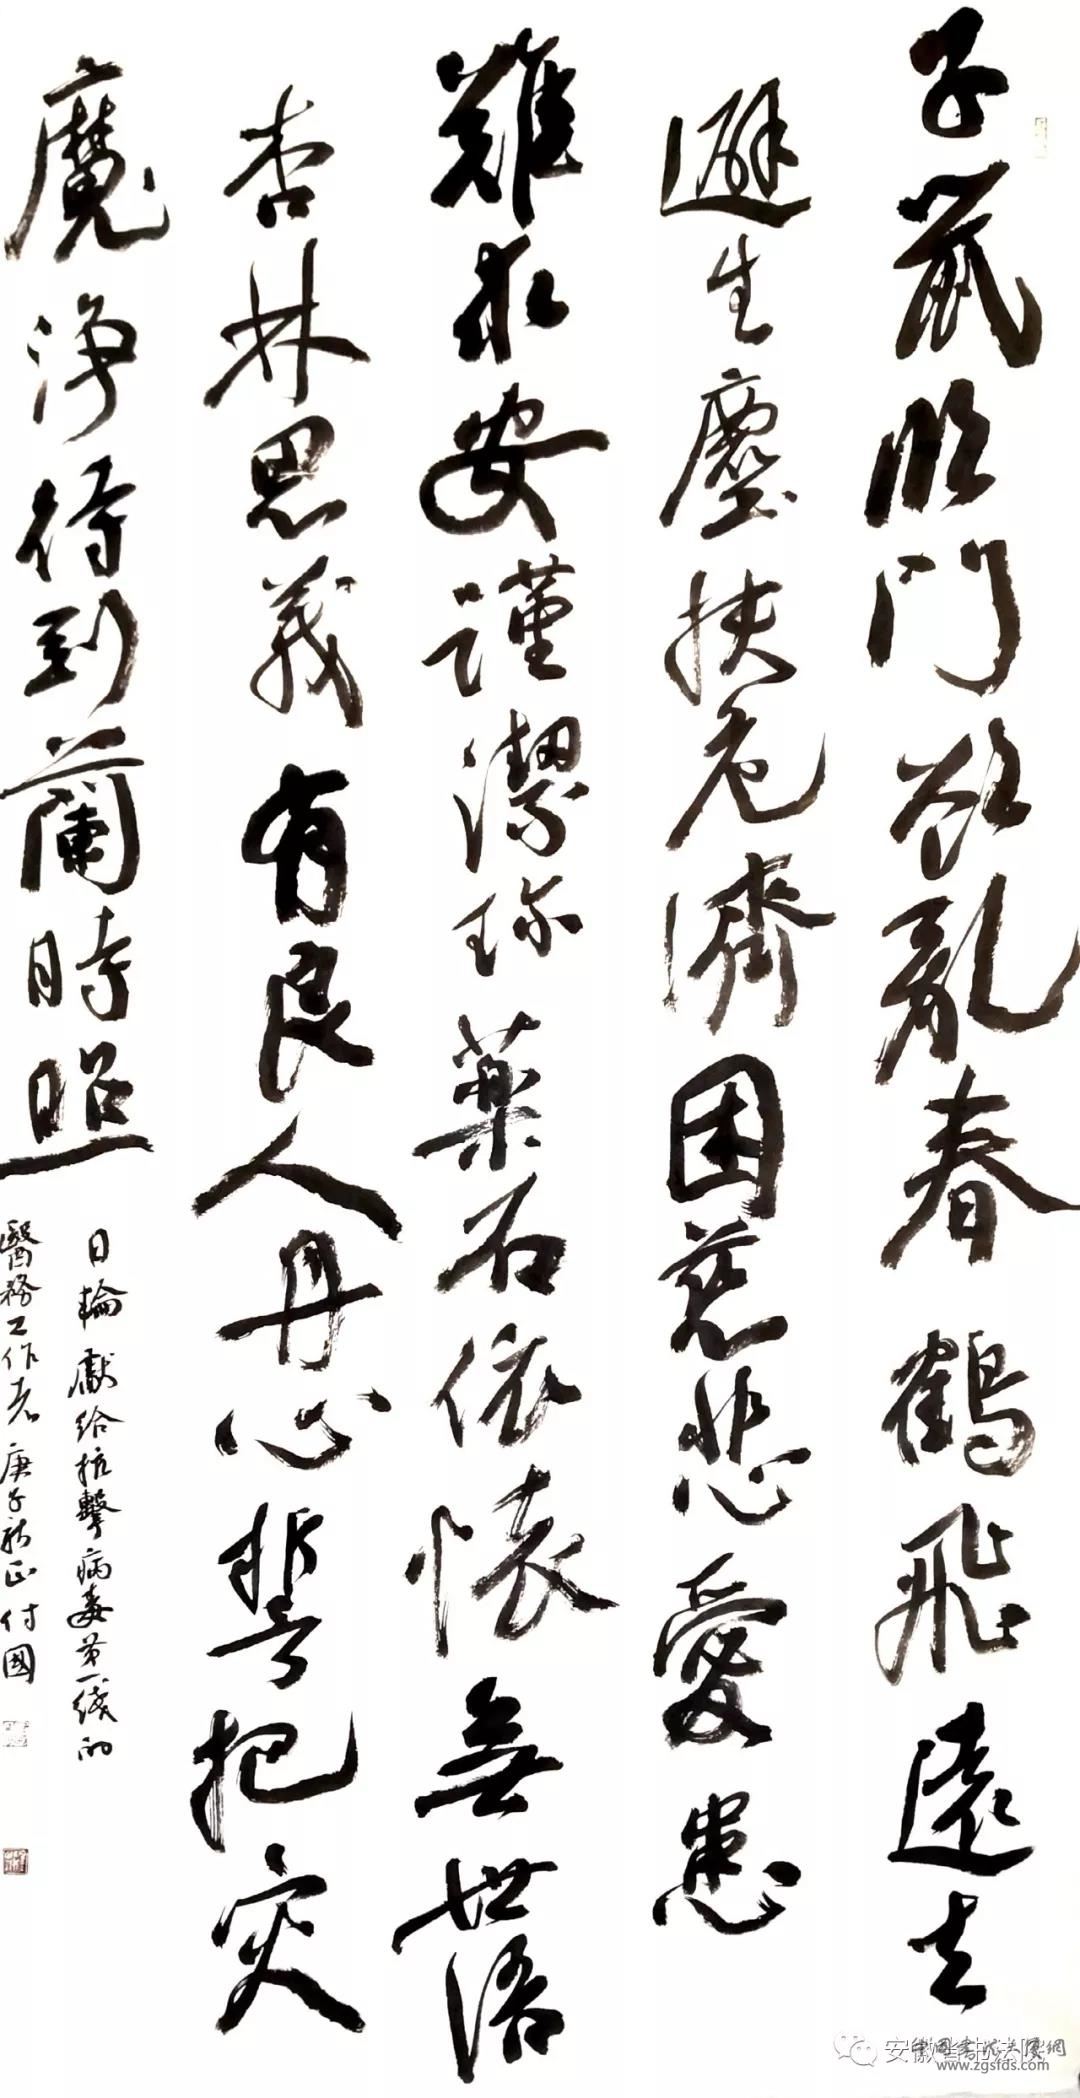 子鼠临門欲亂春鶴飛遠去
避生塵扶危濟困慈悲愛患
難求安謹潔珎薬石依懷無世語
杏林思義有良人丹心誓把灾
魔淨待到蘭時照
日輪獻給抗擊病毒第一綫的
醫務工作者庚子新正付國
安徽省书法院
www.zgsfds.com